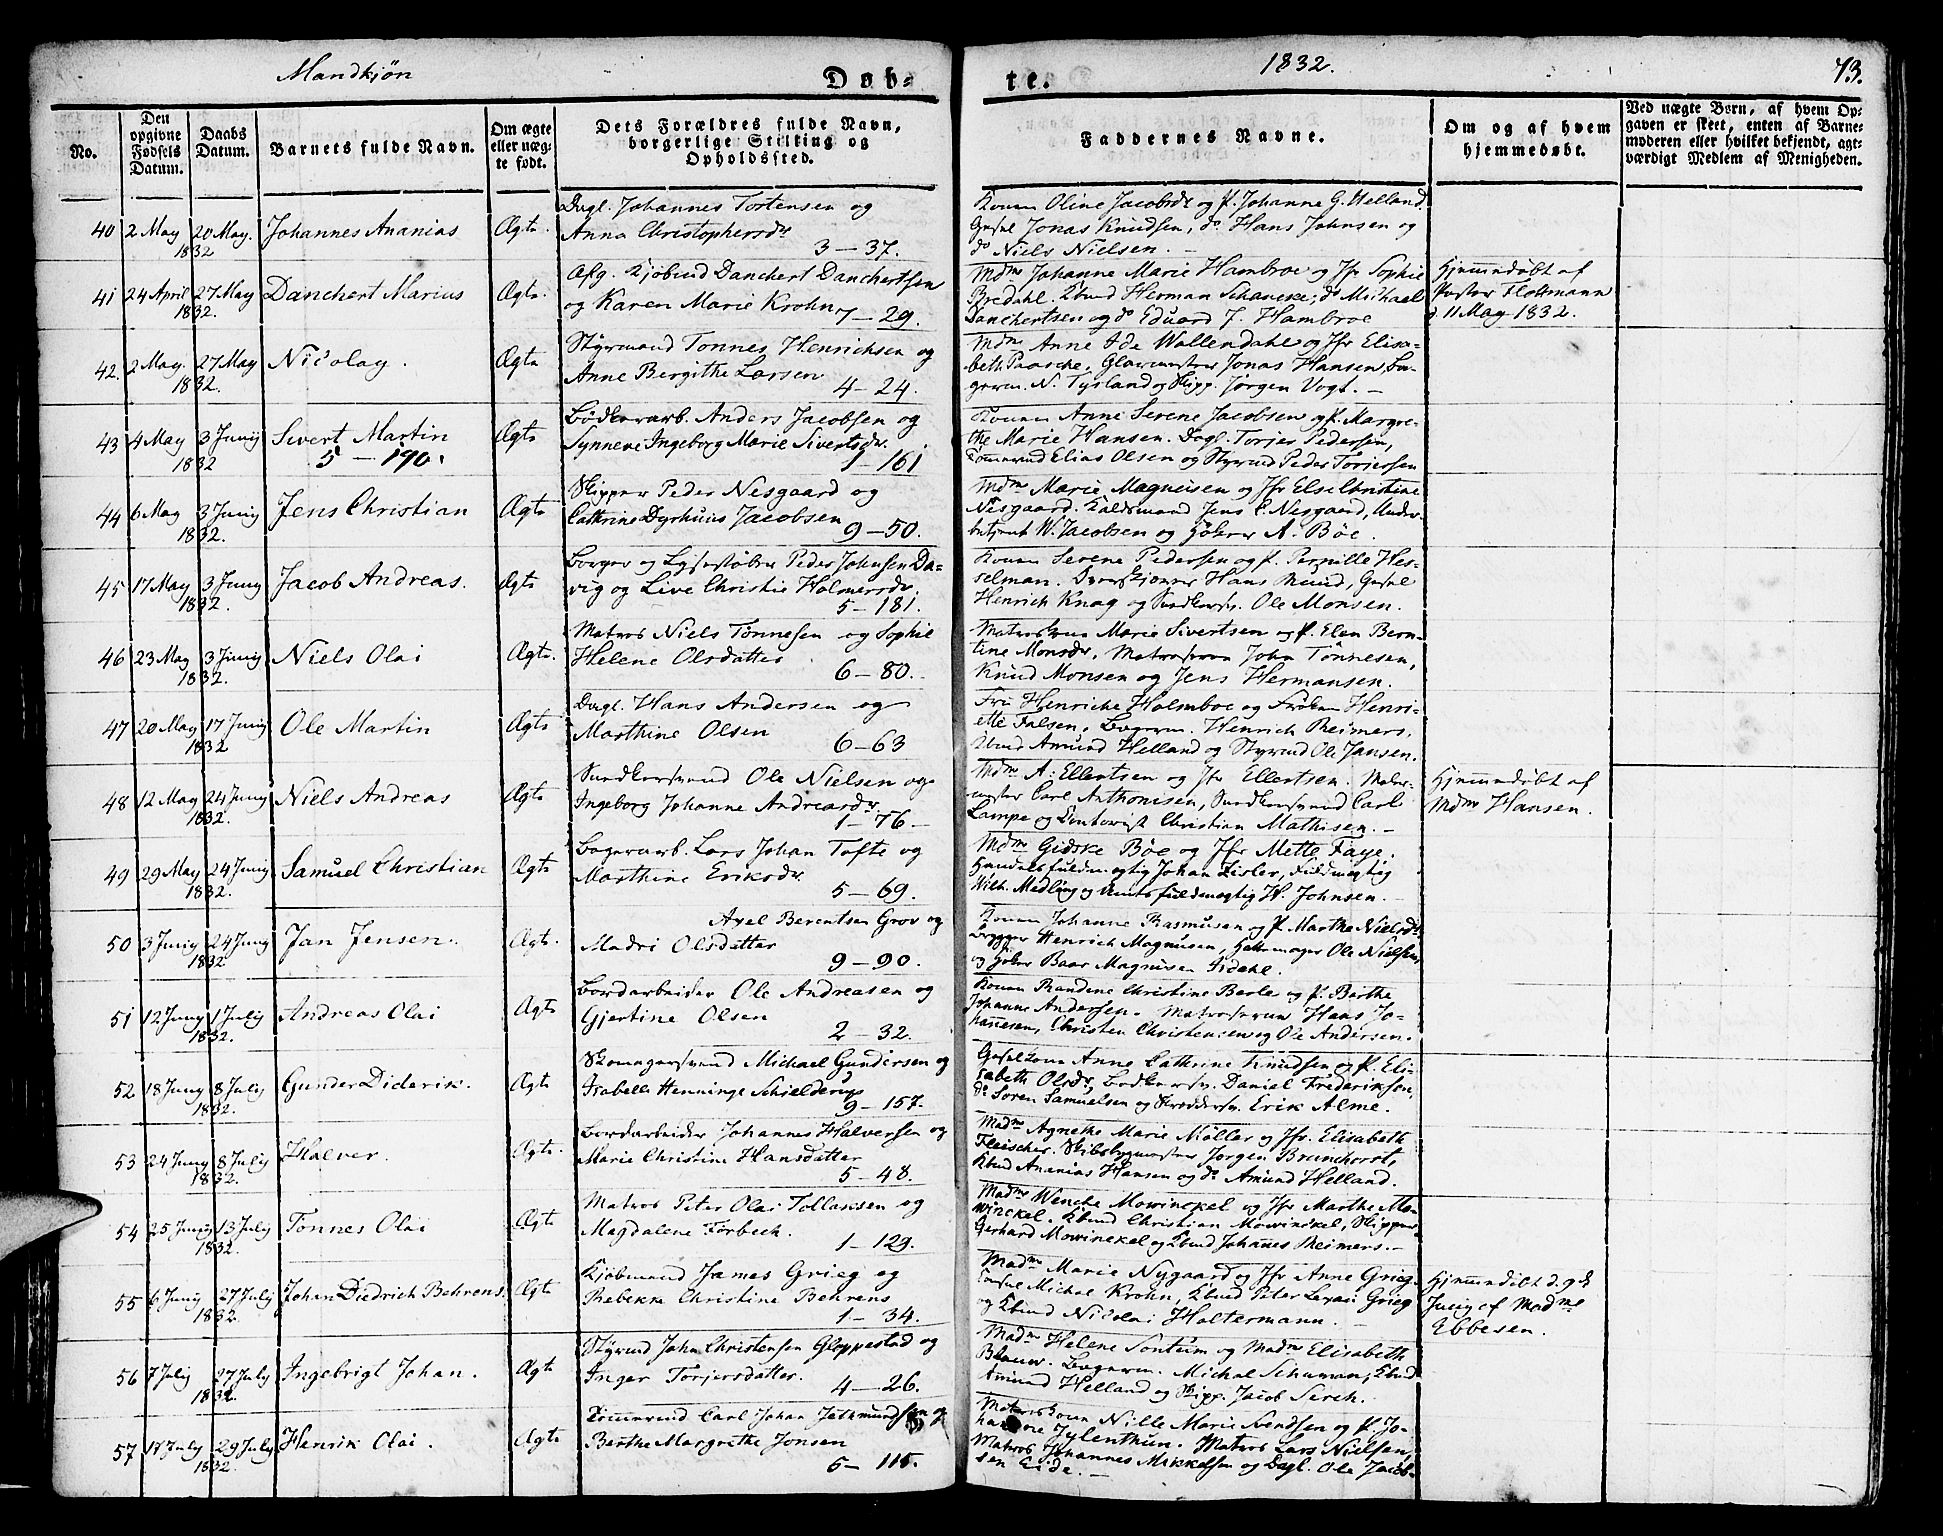 Mandkjøn
Døb-
te.
1832.
73.
No.
Den opgivne Fødsels Datum.
Daabs Datum.
Barnets fulde Navn.
Om ægte eller uægte født.
Dets Forældres fulde Navn, borgerlige Stilling og Opholdssted.
Faddernes Navne.
Om og af hvem hjemmedøbt.
Ved uægte Børn, af hvem Opgaven er skeet, enten af Barnemoderen eller hvilket bekjendt, agtværdigt Medlem af Menigheden.
40 2 May 20 May. 1832 Johannes Ananias Ægte.
Dagl. Johannes Tortensen og
Anna Christophersdr
3 — 37.
Konen Oline Jacobsdr og P. Johanne G. Helland.
Jonas Knudsen, do Hans Johnsen og
do Niels Nielsen. —
41 24 April 27 May 1832. Danchert Marius Ægte.
Afg. Kjøbmd Danchert Danchertsen
og Karen Marie Krohn 7 — 29.
Mdme Johanne Marie Hambroe og Jfr Sophie
Bredahl. Kbmd Herman do Michael
Danchertsen og do Eduard J. Hambroe
Hjemmedøbt af
Pastor Flottmann
d. 11 May 1832.
42. 2 May. 27 May 1832. Nicolay. Ægte
Styrmand Tonnes Henrichsen og
Anne Bergithe Larsen
4 — 24.
Mdme Anne Ide Wallendahl og Jfr Elisa-
beth Paasche, Glarmester Jonas Hansen, Bo-
germ. N. Tysland og Skipp. Jørgen Vogt. —
43 4 May 3 Junij 1832 Sivert Martin Ægte
5 — 190.
Bødkerarb. Anders Jacobsen og
Synneve Ingeborg Marie Sivertsdr.
1 — 161
Konen Anne Serene Jacobsen og P. Margre-
the Marie Hansen. Dagl. Torjer Pedersen,
Tømmermd Elias Olsen og Styrmd Peder Torjersen
44 6 May 3 Junij 1832. Jens Christian Ægte
Skipper Peder Nesgaard og
Cathrine Dyrhuus Jacobsen
9 — 50.
Mdme Marie Magnusen og Jfr Else Christine
Nesgaard. Jens C. Nesgaard, Under-
W. Jacobsen og Høker A. Bøe.
45 17 May 3 Junij 1832. Jacob Andreas. Ægte
Borger og Lysestøber Peder Johnsen Da-
vig og Live Christie Holmersdr.
5 — 181.
Konen Serene Pedersen og P. Pernille Hes-
selman. Hans Mund,
Henrich Knag og Ole Monsen.
46 23 May 3 Junij 1832. Niels Olai Ægte.
Matros Niels Tönnesen og Sophie
Helene Olsdatter
6 — 80.
Matroskonen Marie Sivertsen og P. Elen Bern-
tine Monsdr, Matroserne John Tönnesen,
Knud Monsen og Jens Hermansen.
47 20 May 17 Junij 1832 Ole Martin Ægte
Dagl. Hans Andersen og
Marthine Olsen
6 — 63
Fru Henriche Holmboe og Frøken Henri-
ette Falsen, Henrich Reimers,
Kbmd Amund Helland og Styrmd Ole Jansen.
48 12 May 24 Junij 1832. Niels Andreas Ægte
Ole Nielsen og
Ingeborg Johanne Andreasdr.
1 — 76 —
Mdme A: Ellertsen og Jfr Ellertsen.
Carl Anthonisen, Carl
Lampe og Christian Mathisen. —
Hjemmedøbt af
Mdme Hansen.
49 29 May 24 Junij 1832. Samuel Christian Ægte
Bagerarb. Lars Johan Tofte og
Marthine Eriksdr.
5 — 69.
Mdme Gidske Bøe og Jfr Mette Faye.
Handelsfuldmægtig Johan Zisler, Fuldmægtig
Wilh. Medling og Amtsfuldmægtig H. Johnsen. —
50 3 Junij 24 Junij 1832 Jan Jensen. Ægte.
Axel Berentsen Grov og
Madri Olsdatter
9 — 90.
Konen Johanne Rasmusen og P. Marthe Nielsdr
Henrich Magnusen, Hattemager Ole Nielsen,
og Baar Magnusen Isdahl.
51 12 Junij 1 Julij 1832. Andreas Olai Ægte
Bordarbeider Ole Andreasen og
Gjertine Olsen
2 — 32.
Konen Randine Christine Berle og P. Berthe
Johanne Andersen. Matroserne Hans Jo-
hanesen, Christen Christensen og Ole Andersen.
52 18 Junij 8 Julij 1832. Gunder Diderik. Ægte
Michael Gundersen og
Isabelle Henninge Schielderup
9 — 157.
Anne Cathrine Knudsen og P. Eli-
sabeth Olsdr, Daniel Frederiksen,
do Soren Samuelsen og Erik Alme.
53 24 Junij 8 Julij 1832. Halver. Ægte.
Bordarbeider Johannes Halversen og
Marie Christine Hansdatter
5 — 48.
Madme Agnethe Marie Möller og Jfr. Elisabeth
Fleischer, Skibsbygmester Jørgen Brunchorst,
Kbmd Ananias Hansen og do Amund Helland.
54 25 Junij 13 Julij 1832. Tonnes Olai Ægte
Matros Peter Olai Tollaksen og
Magdalene Forbech.
1 — 129.
Madme Wenche Mowinckel og Jfr Marthe Mo-
winckel. Kbmd Christian Mowinckel, Skipper
Gerhard Mowinckel og Kbmd Johannes Reimers. —
55 6 Junij 27 Julij 1832. Johan Diedrich Behrens. Ægte
Kjøbmand James Grieg og
Rebekke Christine Behrens
1 — 34.
Madme Marie Nygaard og Jfr Anne Grieg.
Michal Krohn, Kbmd Peter Grieg
og Kbmd Nicolai Haltermann. —
Hjemmedøbt d. 9de
Junij af Madme
Ebbesen.
56 7 Julij 27 Julij 1832. Ingebrigt Johan. Ægte
Styrmd John Christensen Gloppestad og
Inger Torjersdatter.
4 — 26.
Madme Helene Sontum og Madme Elisabeth
Blauw. Michal Schuman, Kbmd
Amund Helland og Skipp. Jacob Serch.
57 17 July 29 July 1832. Henrik Olai. Ægte
Tømmermd Carl Johan Jethmundsen og
Berthe Margrethe Jonsen
5 — 115.
Matroskonen Nille Marie Svendsen og P. Jo-
hanne Jylenthun. Matros Lars Nielsen,
Matros Johannes Mikkelsen og Dagl. Ole Jacob-
sen Eide. —